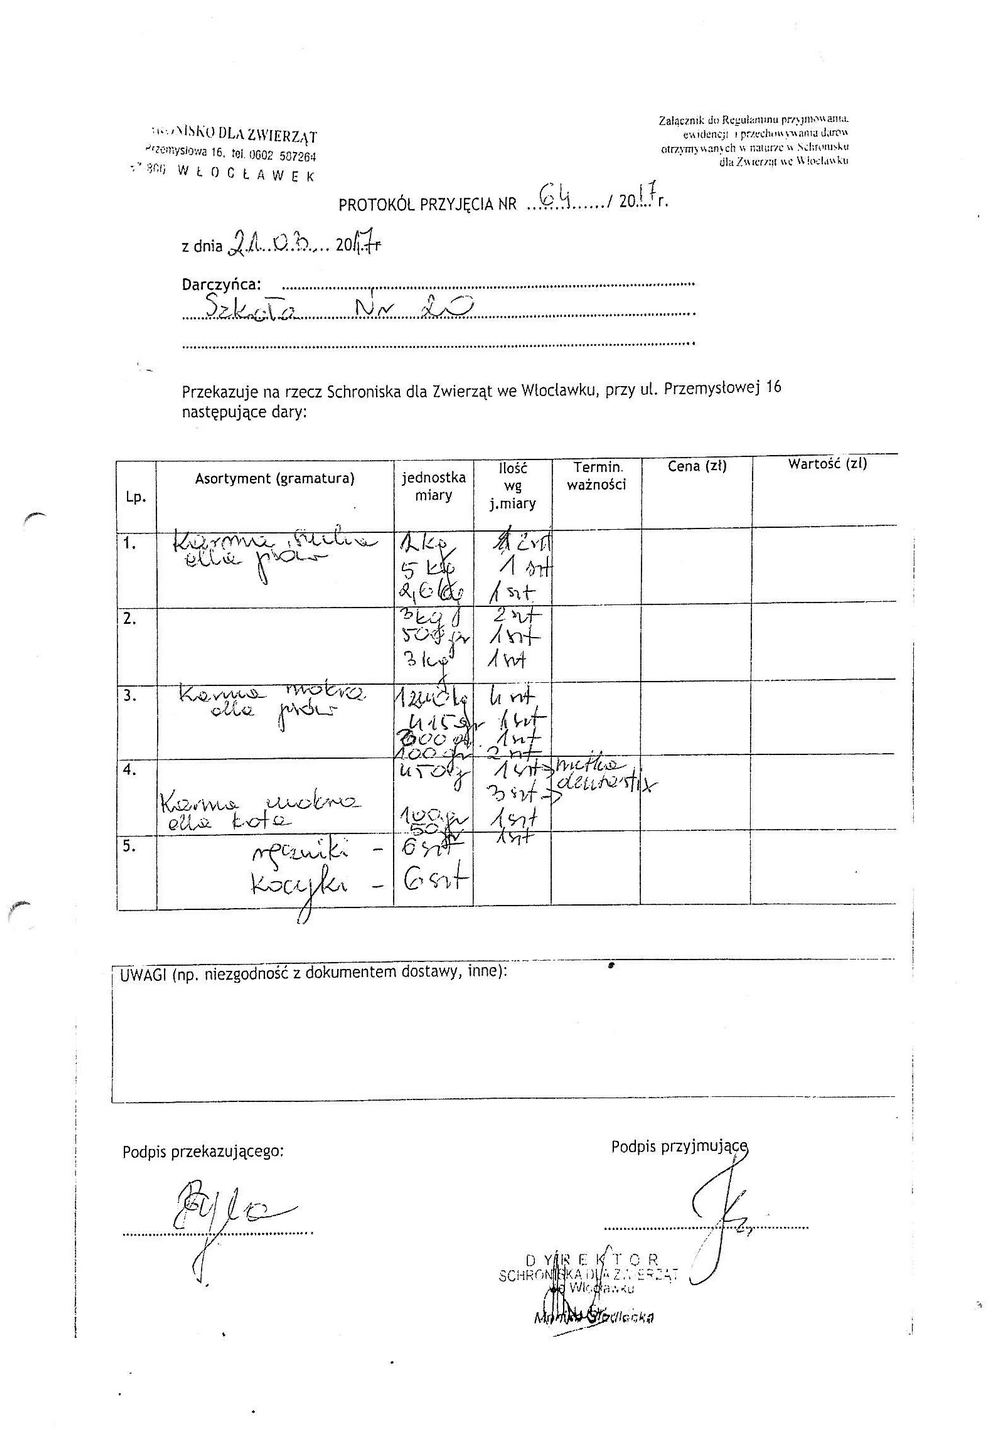 NISKO DLA ZWIERZĄT
Przemysłowa 16, tel. 0602 507264
WŁOCŁAWEK
Załącznik do Regulaminu przyjmowania,
ewidencji i przechowywania darów
otrzymywanych w naturze w Schronisku
dla Zwierząt we Włocławku
PROTOKÓŁ PRZYJĘCIA NR ...64....../ 2017r.
z dnia 21.03.... 2017r
Darczyńca:
Szkoła Nr 20
Przekazuje na rzecz Schroniska dla Zwierząt we Włocławku, przy ul. Przemysłowej 16
następujące dary:
Lp. Asortyment (gramatura) jednostka miary Ilość wg j.miary Termin. ważności Cena (zł) Wartość (zł)
1. Karma sucha
dla psów
5 kg 1 szt
1 szt
2. 3kg 2 szt
500gr 1szt
3 kg 1 szt
3. Karma mokra 4 szt
dla psów 415gr 1szt
1szt
100gr 2 szt
4. 1szt
3 szt dentastix
Karma mokra
dla kota 100gr 1szt
50gr 1szt
5. ręczniki - 6 szt
kocyki - 6 szt
UWAGI (np. niezgodność z dokumentem dostawy, inne):
Podpis przekazującego:
Podpis przyjmujące
DYREKTOR
SCHRONISKA DLA ZWIERZĄT
we Włocławku